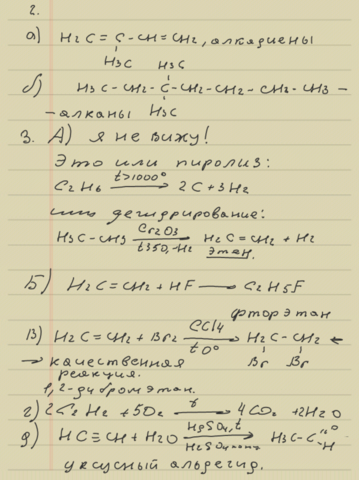 2.
а) H₂C = C - CH = CH₂, алкадиены
H₃C
H₃C
б) H₃C - CH₂ - C - CH₂ - CH₂ - CH₂ - CH₃ -
- алканы H₃C
3. А) я не вижу!
Это или пиролиз:
C₂H₆ t>1000° → 2C + 3H₂
или дегидрирование:
H₃C-CH₃ Cr₂O₃ t350,-H₂ → H₂C = CH₂ + H₂
этен.
Б) H₂C = CH₂ + HF → C₂H₅F
фторэтан
В) H₂C = CH₂ + Br₂ CCl₄ t0° → H₂C - CH₂ ←
→ качественная Br Br
реакция.
1,2-дибромэтан.
г) 2C₂H₂ + 5O₂ t → 4CO₂ + 2H₂O
д) HC ≡ CH + H₂O HgSO₄,t H₂SO₄ → H₃C - C O H
уксусный альдегид.